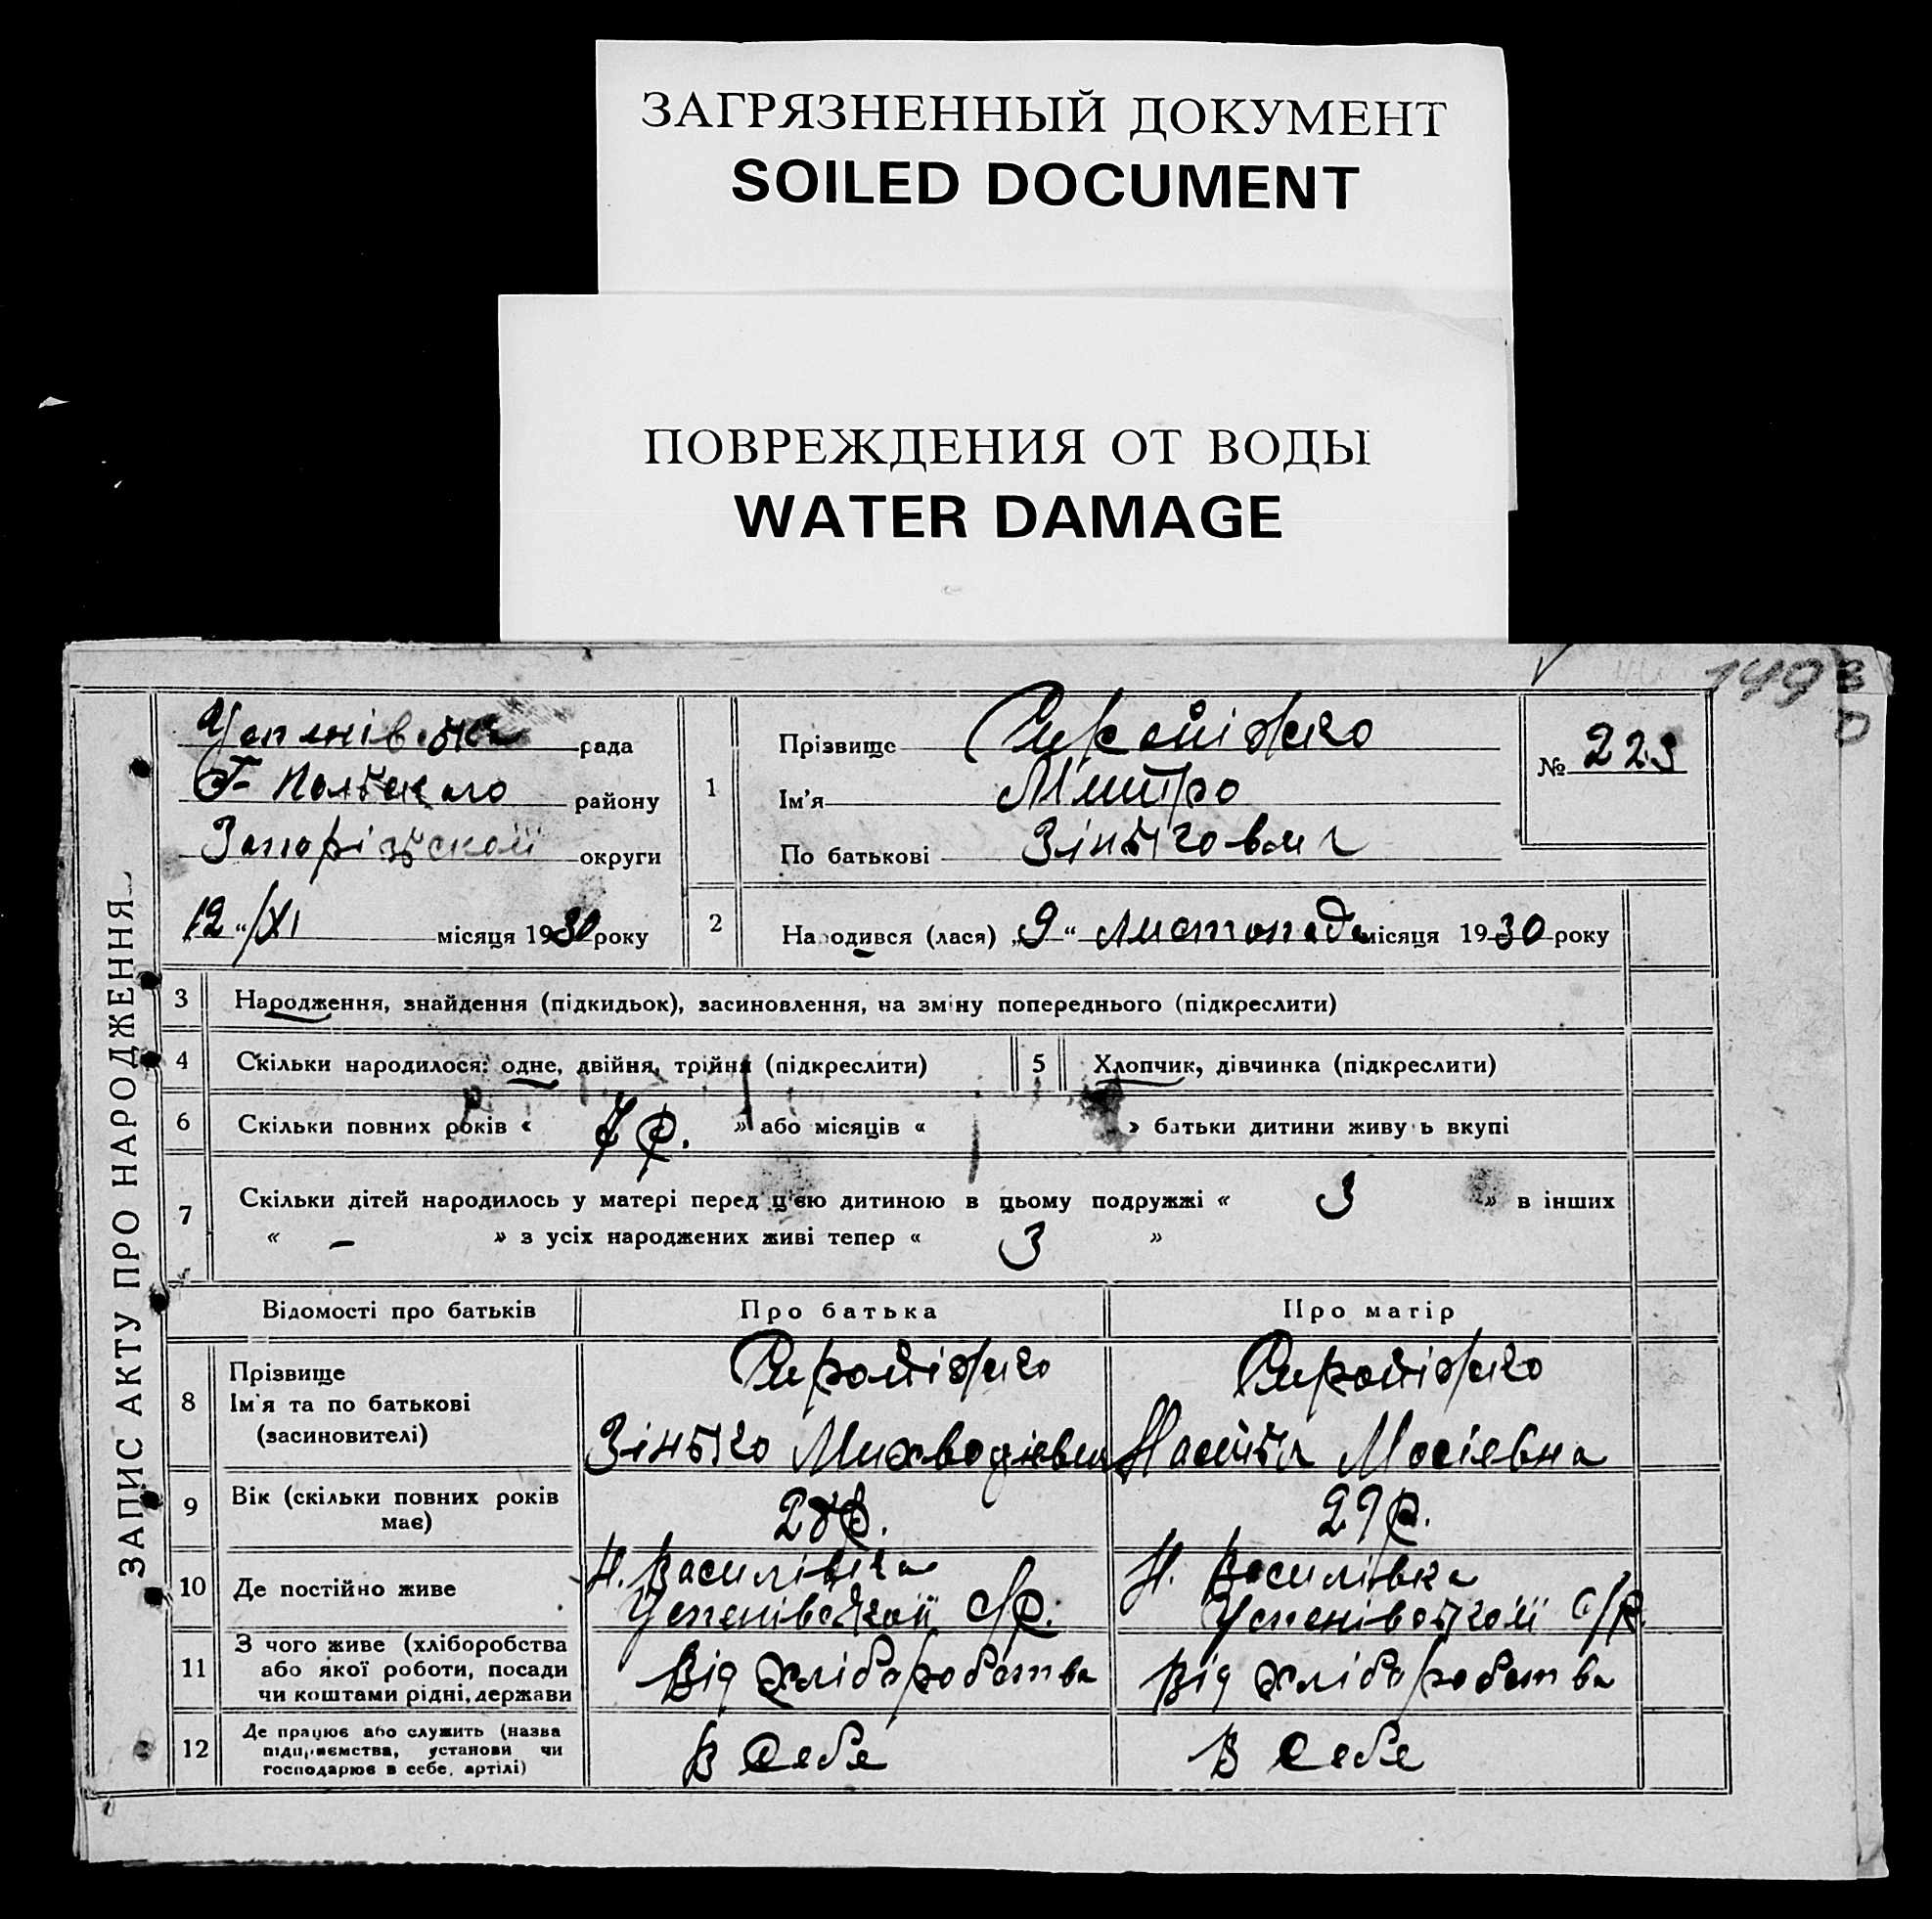 ЗАГРЯЗНЕННЫЙ ДОКУМЕНТ
SOILED DOCUMENT
ПОВРЕЖДЕНИЯ ОТ ВОДЫ
WATER DAMAGE
1493
ЗАПИС АКТУ ПРО НАРОДЖЕННЯ
рада
району
Запорізської округи
12 "/XI місяця 1930 року
1
Прізвище
Ім'я Митро
По батькові Зіньгович
№ 223
2
Народився (лася) „9“ листопада місяця 1930 року
3
Народження, знайдення (підкидьок), засиновлення, на зміну попереднього (підкреслити)
4
Скільки народилося: одне, двійня, трійня (підкреслити)
5
Хлопчик, дівчинка (підкреслити)
6
Скільки повних років « 7 р. » або місяців « » батьки дитини живуть вкупі
7
Скільки дітей народилось у матері перед цією дитиною в цьому подружжі « 3 » в інших
« – » з усіх народжених живі тепер « 3 »
Відомості про батьків
Про батька
Про матір
8
Прізвище
Ім'я та по батькові
(засиновителі)
Зінько
Настя Мосіевна
9
Вік (скільки повних років
має)
28 р.
29 р.
10
Де постійно живе
Н. Василівка
Успенівської с/р.
Н. Василівка
Успенівської с/р.
11
З чого живе (хліборобства
або якої роботи, посади
чи коштами рідні, держави
Від хліборобства
Від хліборобства
12
Де працює або служить (назва
підприємства, установи чи
господарює в себе, артілі)
В себе
В себе